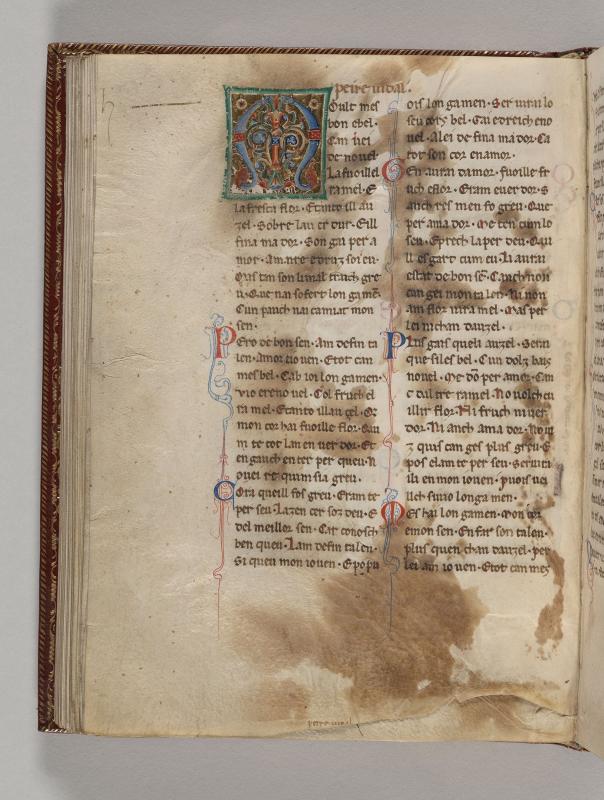 peire uidal.
Oult mes
bon ebel.
Can uei
de nouel.
La fuoillel
ramel. E
la fresca flor. Etanto ill au
zel. Sobre lau er dur. Eill
fina ma dor. Son gai per a
mor. Am are etrut soi eu.
Mas tan son li mal trach gre
u. Que nai sofert lon ga men.
Cun pauch nai camiat mon
sen.
Pero de bon sen. Am de fin ta
len. Amor tio uen. Etot can
mes bel. Cab ioi lon ga men.
Uio ereno uel. Col fruch el
ra mel. Etanto ill au zel. Qe
mon cor hai fuoille flor. Qau
m te tot lan en uer dor. Et
en gauch en ter per queu. N
ouei re qum sia greu.
Qora queill fos greu. Eram te
per seu. La zen cer soz deu. E
del meillor sen. Car conosch
ben queu. Lam de fin talen.
Si queu mon io uen. E
ois lon ga men. Ser uirai lo
seu cors bel. Cui edreich eno
uel. Alei de fina ma dor. Ca
tot son cor en amor.
Gen aurai da mor. Fuoille fr
uch eflor. Eram euer dor. S
anch res men fo greu. Que
per ama dor. Me ten cum lo
seu. E prech la per deu. Qau
ll es gart cum eu. Li aurai
estat de bon sen. Canch non
can gei mon ta len. Ni non
am flor ni ra mel. Mas per
lei ni chan dauzel.
Plus gais queil auzel. Serai
que siles bel. Cun dolz bais
nouel. Me don per amor. Can
c dal tre ramel. No uolch cu
illir flor. Ni fruch ni uer
dor. Ni anch ama dor. No ui
z quis can ges plus greu. E
pos clam te per seu. Serui ra
ila en mon iouen. puois uei
lleh serio longa men.
Mes hai lon gamen. Mon cor
emon sen. En far son talen.
plus quen chan dauzel. per
lei am io uen. Etot can mes
peire uidal